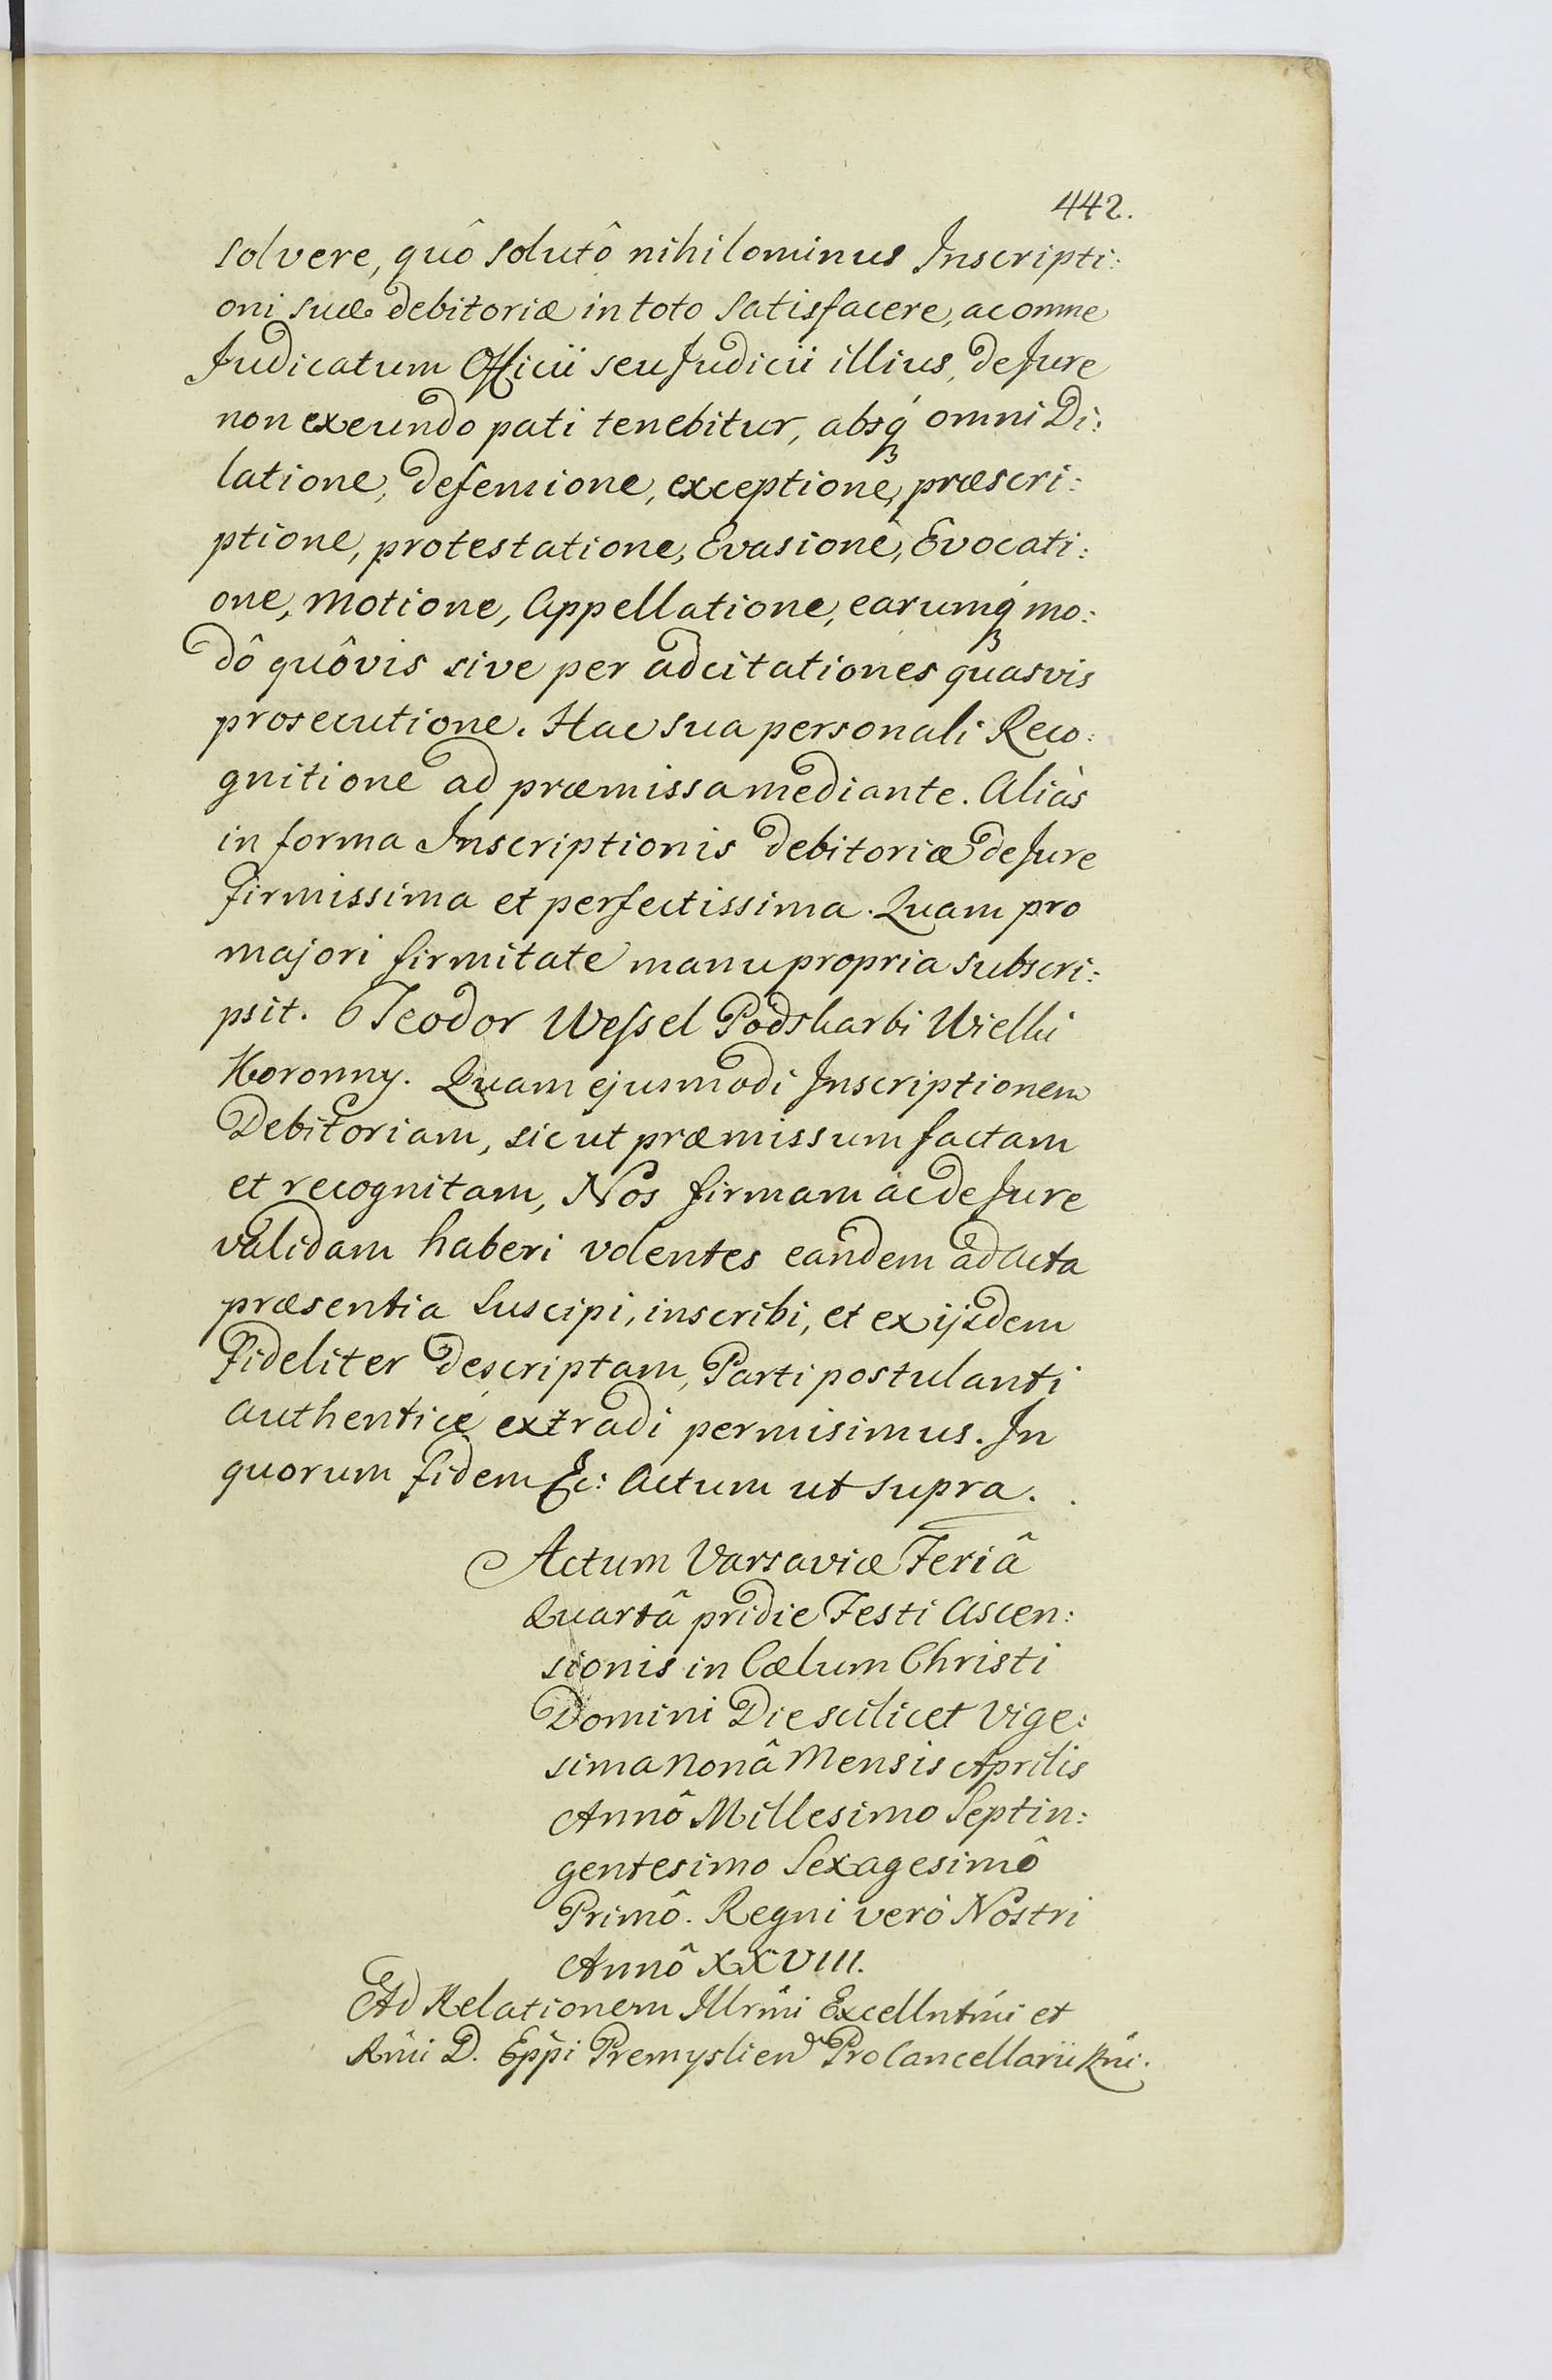 442.
solvere, quô solutô nihilominus Inscripti:
oni suæ debitoriæ in toto satisfacere, ac omne
Judicatum Officii seu Judicii illius, de Jure
non exeundo pati tenebitur, absq́ꝫ omni Di:
latione, defensione, exceptione, præscri:
ptione, protestatione, Evasione, Evocati:
one, Motione, Appellatione, earumq́ꝫ mo:
dô quôvis sive per adcitationes quasvis
prosecutione. Hac sua personali Reco:
gnitione ad præmissa mediante. Aliàs
in forma Inscriptionis debitoriæ de Jure
firmissima et perfectissima. Quam pro
majori firmitate manu propria subscri:
psit. Teodor Wessel Podskarbi Wielki
Koronny. Quam ejusmodi Inscriptionem
Debitoriam, sic ut præmissum factam
et recognitam, Nos firmam ac de Jure
validam haberi volentes eandem ad Acta
præsentia suscipi, inscribi, et ex ijsdem
fideliter descriptam, Parti postulanti
authenticè extradi permisimus. In
quorum fidem &c: Actum ut supra.
Actum Varsaviæ Feriâ
Quartâ pridie Festi Ascen:
sionis in Cælum Christi
Domini Die scilicet Vige:
sima Nonâ Mensis Aprilis
Annô Millesimo Septin:
gentesimo Sexagesimô
Primô. Regni verò Nostri
Annô XXVIII.
Ad Relationem Illrm̃i Excellntm̃i et
Rm̃i D. Epp̃i Premyslien Pro Cancellarii Rñi.